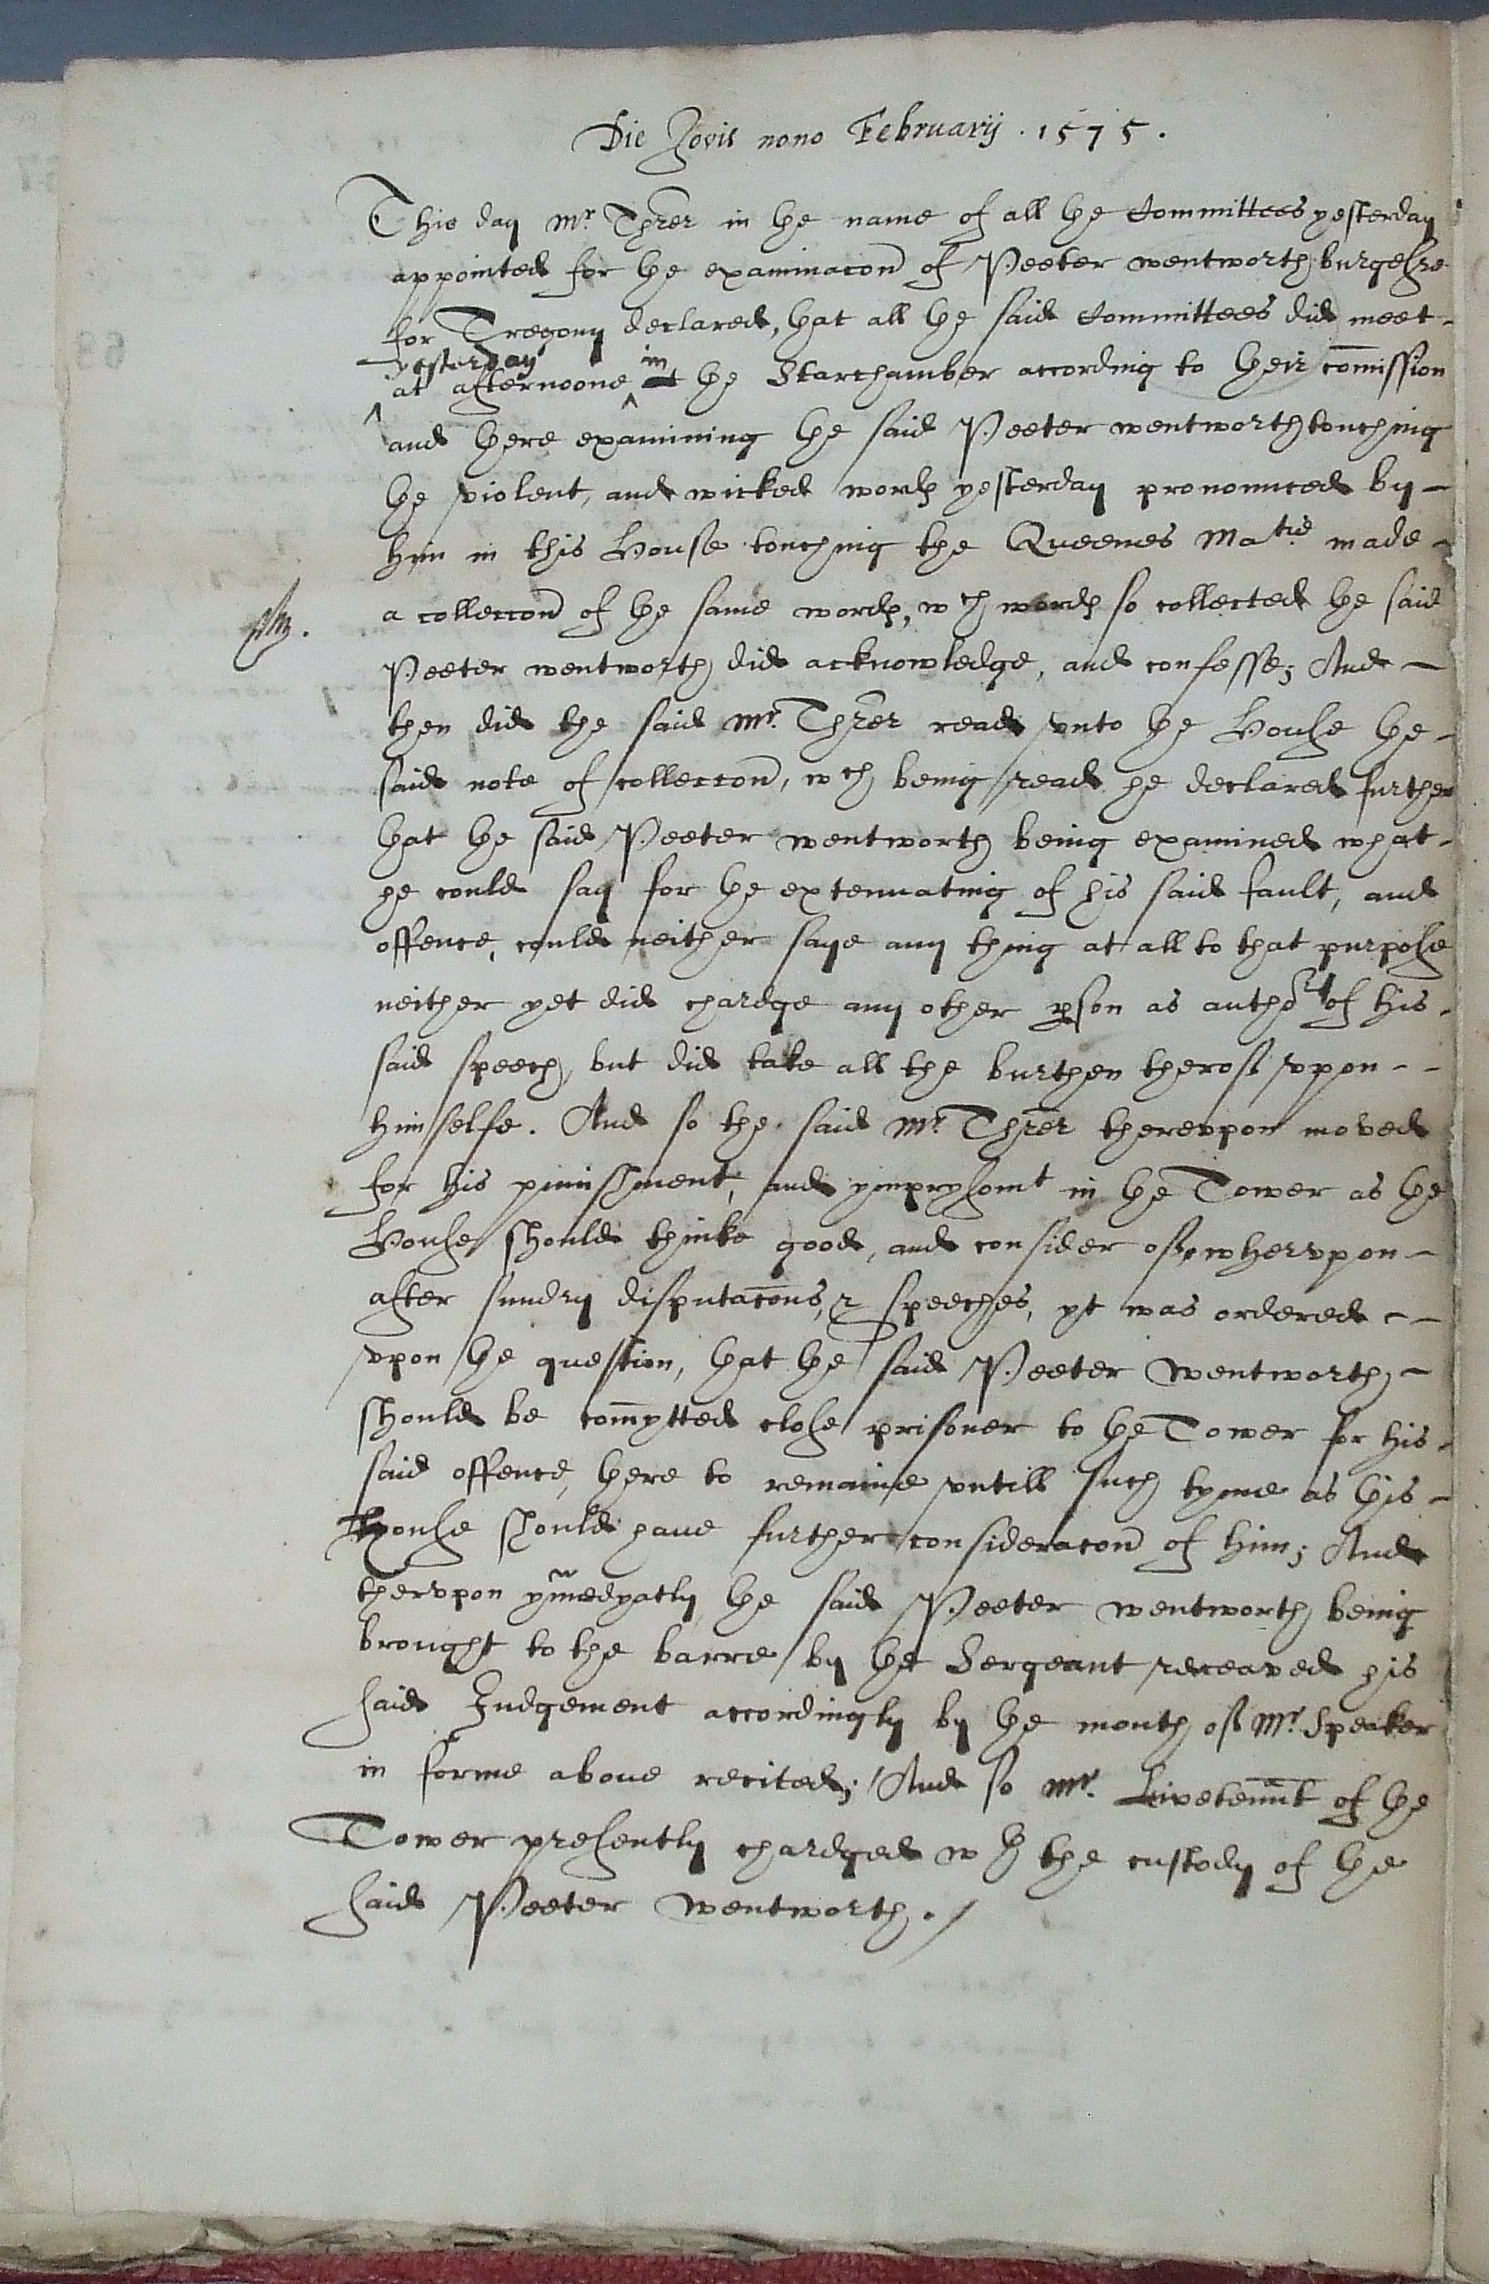 Die Jovis nono Februarij . 1575 .
This day Mr. Threr in the name of all the Committees yesterday
appointed for the examinacon of Peeter wentworth, burgesse
for Tregony declared, that all the said Committees did meet
yesterday in
at afternoone the Starchamber according to their comission
and there examining the said Peeter wentworth touching
the violent, and wicked words yesterday pronounced by
him in this House touching the Queenes Matie made
a colleccon of the same words, wch words so collected the said
Peeter wentworth did acknowledge, and confesse; And
then did the said Mr. Threr read vnto the House the
said note of colleccon, wch being read he declared further
that the said Peeter wentworth being examined what
he could say for the extenuating of his said fault, and
offence, could neither saye any thing at all to that purpose
neither yet did chardge any other person as author of his
said speech, but did take all the burthen therof vpon
himselfe. And so the said Mr. Threr therevpon moved
for his punishment, and ymprysomt in the Tower as the
House should thinke good, and consider of, whervpon
after sundry disputacons, & speeches, yt was ordered
vpon the question, that the said Peeter Wentworth
should be comytted close prisoner to the Tower for his
said offence, there to remaine vntill such tyme as this
house should haue further consideracon of him; And
thervpon ymedyatly the said Peeter wentworth being
brought to the barre by the Sergeant receaved his
said Judgement accordingly by the mouth of Mr. Speaker
in forme aboue recited; And so Mr. Livetennt of the
Tower presently chardged wth the custody of the
said Peeter wentworth . /